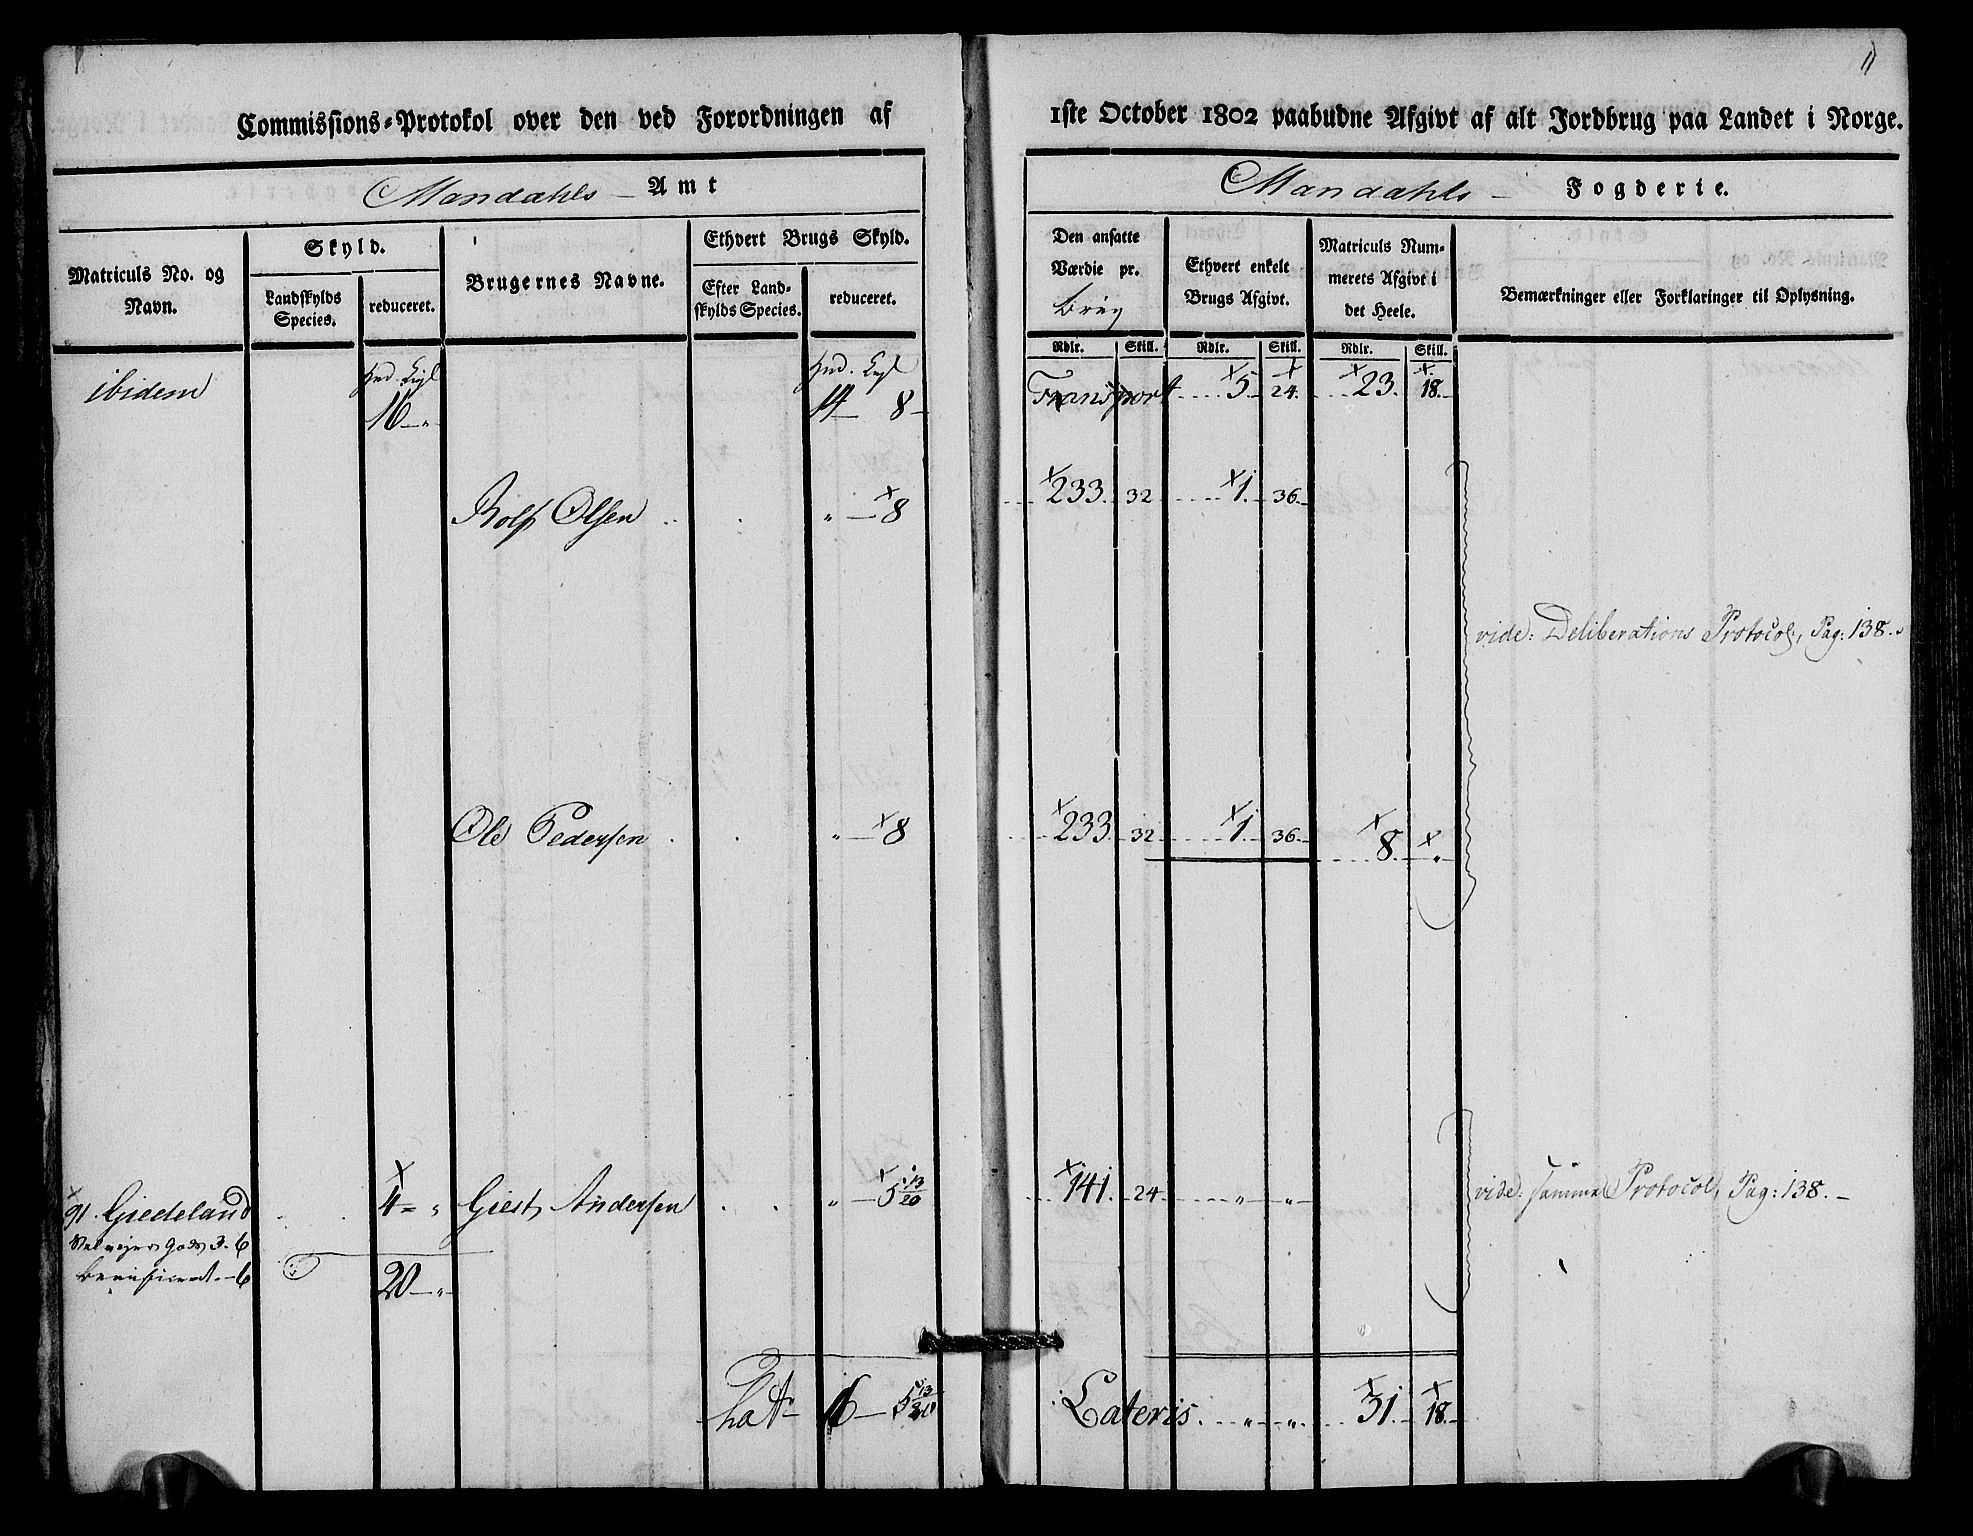 11
Commissions-Protokol over den ved Forordningen af 1ste October 1802 paabudne Afgivt af alt Jordbrug paa Landet i Norge.
Mandahls Amt
Mandahls Fogderie.
Matriculs No. og Navn.
Skyld.
Landskylds Species.
reduceret.
Brugernes Navne.
Ethvert Brugs Skyld.
Efter Landskylds Species.
reduceret.
Den ansatte Værdie pr. brug
Ethvert enkelt Brugs Afgivt.
Matriculs Nummerets Afgivt i det Heele.
Bemærkninger eller Forklaringer til Oplysning.
Rdlr. Skill. Rdlr. Skill. Rdlr. Skill.
ibidem 16 " 8 Transport 5 24 23 18
Rolf Olsen " 8 233 32 1 36
vide: Deliberations Protocol, Pag: 138.
Ole Pedersen " 8 233 32 1 36 8 "
91. Giedeland 4 " Giest Andersen " 5 13/20 141 24 " " vide: samme Protocol, Pag: 138.
20 "
Lat 16 5 13/20 Lateris " " 31 18